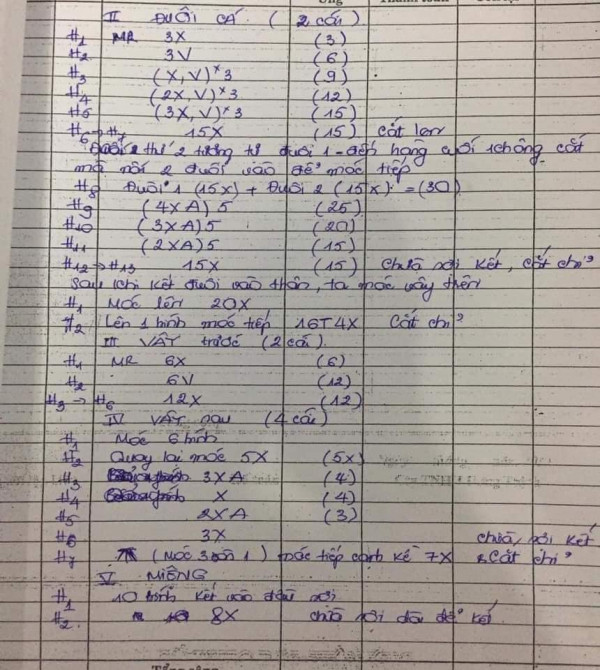 Ứng Thanh toán
II ĐUÔI CÁ. ( 2 cái)
H1 MR 3X (3)
H2 3V (6)
H3 (X, V)*3 (9)
H4 (2X, V)*3 (12)
H5 (3X, V)*3 (15)
H6 → H7 15X (15) Cắt len
Đuôi thứ 2 tương tự đuôi 1 - đến hàng cuối không cắt
mà nối 2 đuôi vào để móc tiếp
H8 Đuôi 1 (15X) + Đuôi 2 (15X) = (30)
H9 (4XA) 5 (25)
H10 (3XA) 5 (20)
H11 (2XA) 5 (15)
H12 → H13 15X (15) Chừa sợi kết, cắt chỉ
Sau khi kết đuôi vào thân, ta móc vây trên
H1 Móc lên 20X
H2 Lên 1 bính móc tiếp 16T4X Cắt chỉ
III VÂY trước (2 cái).
H1 MR 6X (6)
H2 6V (12)
H3 → H6 12X (12)
IV VÂY sau (4 cái)
H1 Móc 6 bính
H2 Quay lại móc 5X (5X)
H3 3XA (4)
H4 X (4)
H5 2XA (3)
H6 3X chừa sợi kết
H7 (Móc 1) móc tiếp cạnh kề 7X Cắt chỉ
V MIỆNG
H1 10 bính kết vào đầu sợi
H2. 8X chừa sợi dài để kết.
Tổng cộng